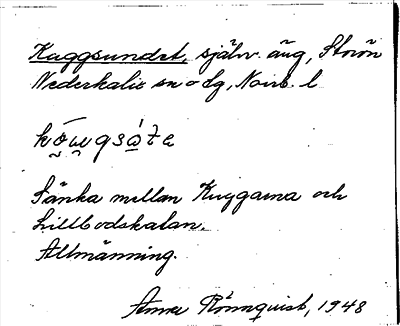 Kaggsundet, själv. äng, Storön
Nederkalix sn o dg, Norrb. l
Sänka mellan Kuggarna och
Lillbodskatan.
Allmänning.
Anna Rönnquist, 1948